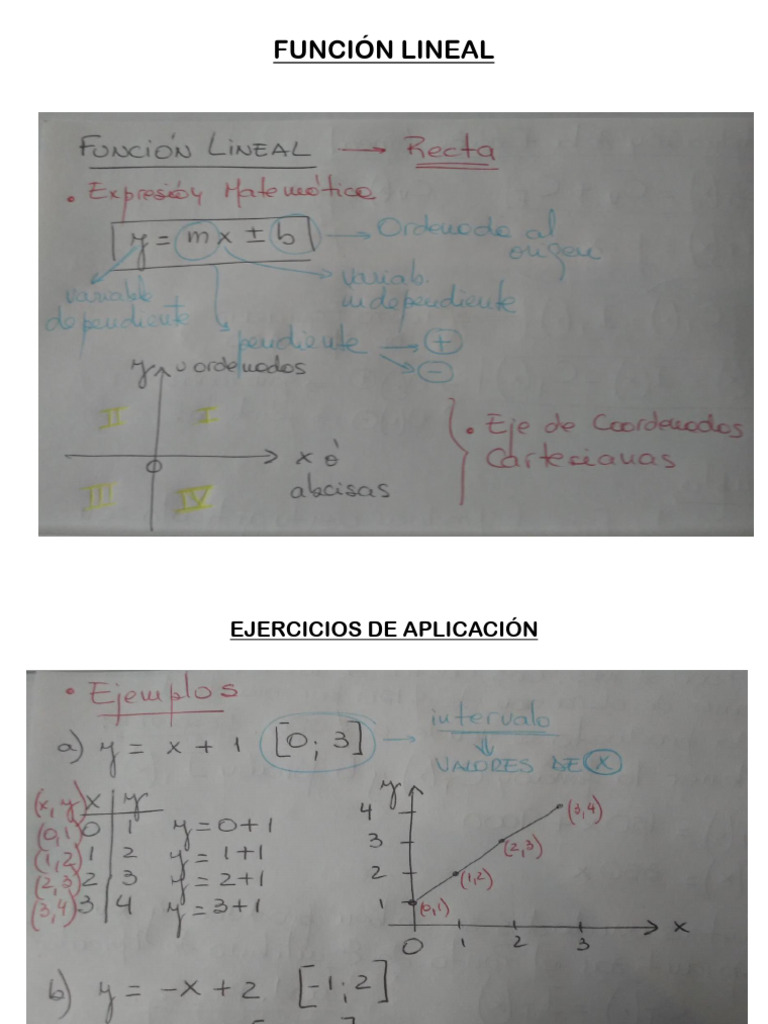 FUNCIÓN LINEAL
FUNCIÓN LINEAL → Recta
• Expresión Matemática
y = mx ± b → Ordenada al origen
variable dependiente
variab. independiente
pendiente → +
→ −
y u ordenadas
II I
x ó abcisas
III IV
• Eje de Coordenadas
Cartesianas
EJERCICIOS DE APLICACIÓN
• Ejemplos
a) y = x + 1 [0; 3] → intervalo
⇓
VALORES DE X
(x, y) x y
(0,1) 0 1 y = 0+1
(1,2) 1 2 y = 1+1
(2,3) 2 3 y = 2+1
(3,4) 3 4 y = 3+1
y
4 (3,4)
3 (2,3)
2 (1,2)
1 (0,1)
0 1 2 3 x
b) y = -x + 2 [-1; 2]